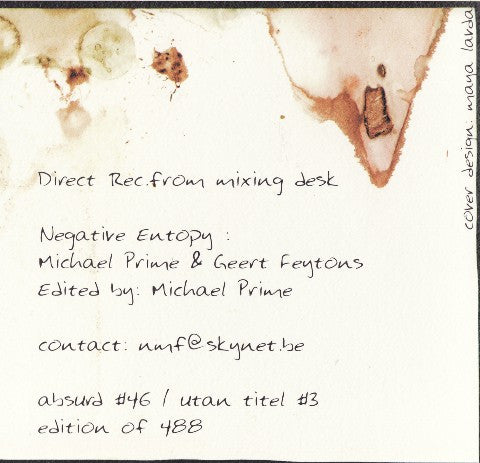 Direct Rec.from mixing desk
Negative Entopy :
Michael Prime & Geert Feytons
Edited by: Michael Prime
contact: nmf@skynet.be
absurd #46 / utan titel #3
edition of 488
cover design. maya larda